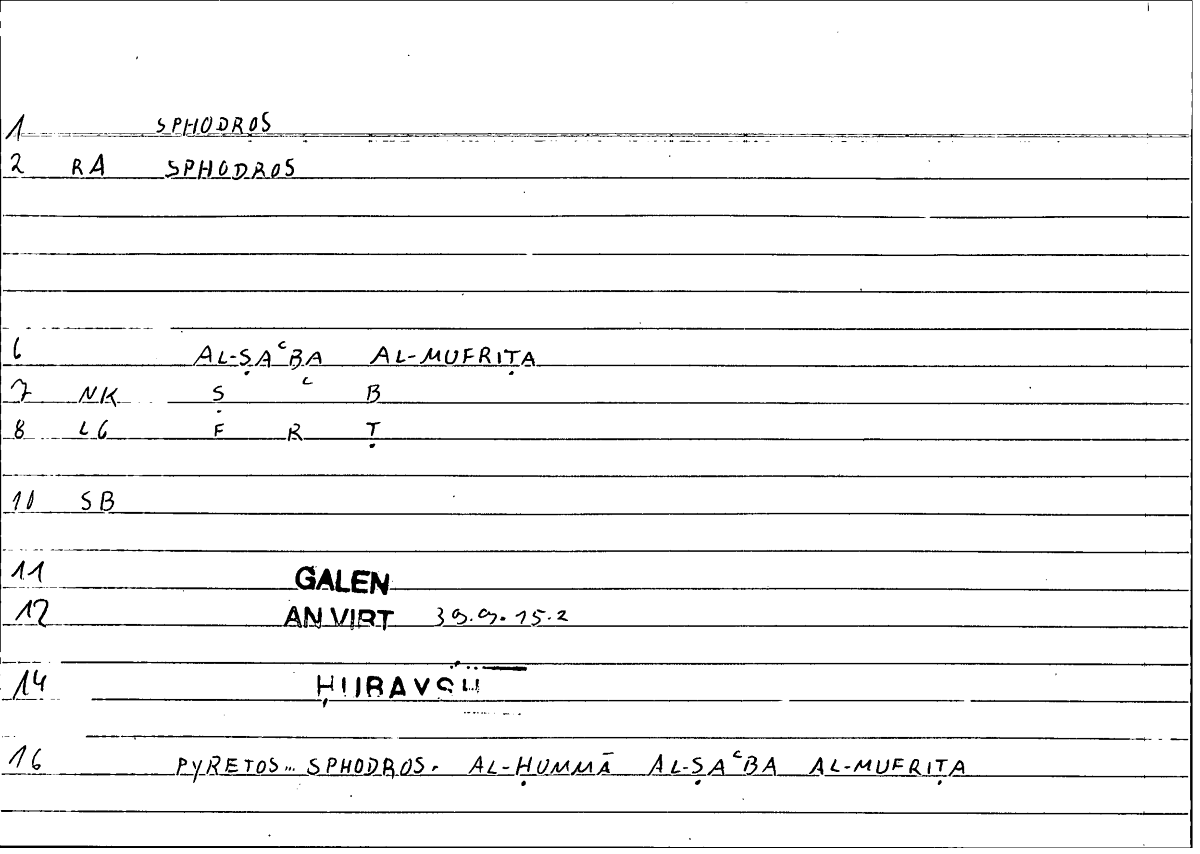 1 SPHODROS
2 RA SPHODROS
6 AL-ṢAᶜBA AL-MUFRIṬA
7 NK Ṣ ᶜ B
8 LG F R Ṭ
10 SB
11 GALEN
12 AN VIRT 39.9.15.2
14 ḤUBAYSH
16 PYRETOS... SPHODROS. AL-ḤUMMĀ AL-ṢAᶜBA AL-MUFRIṬA